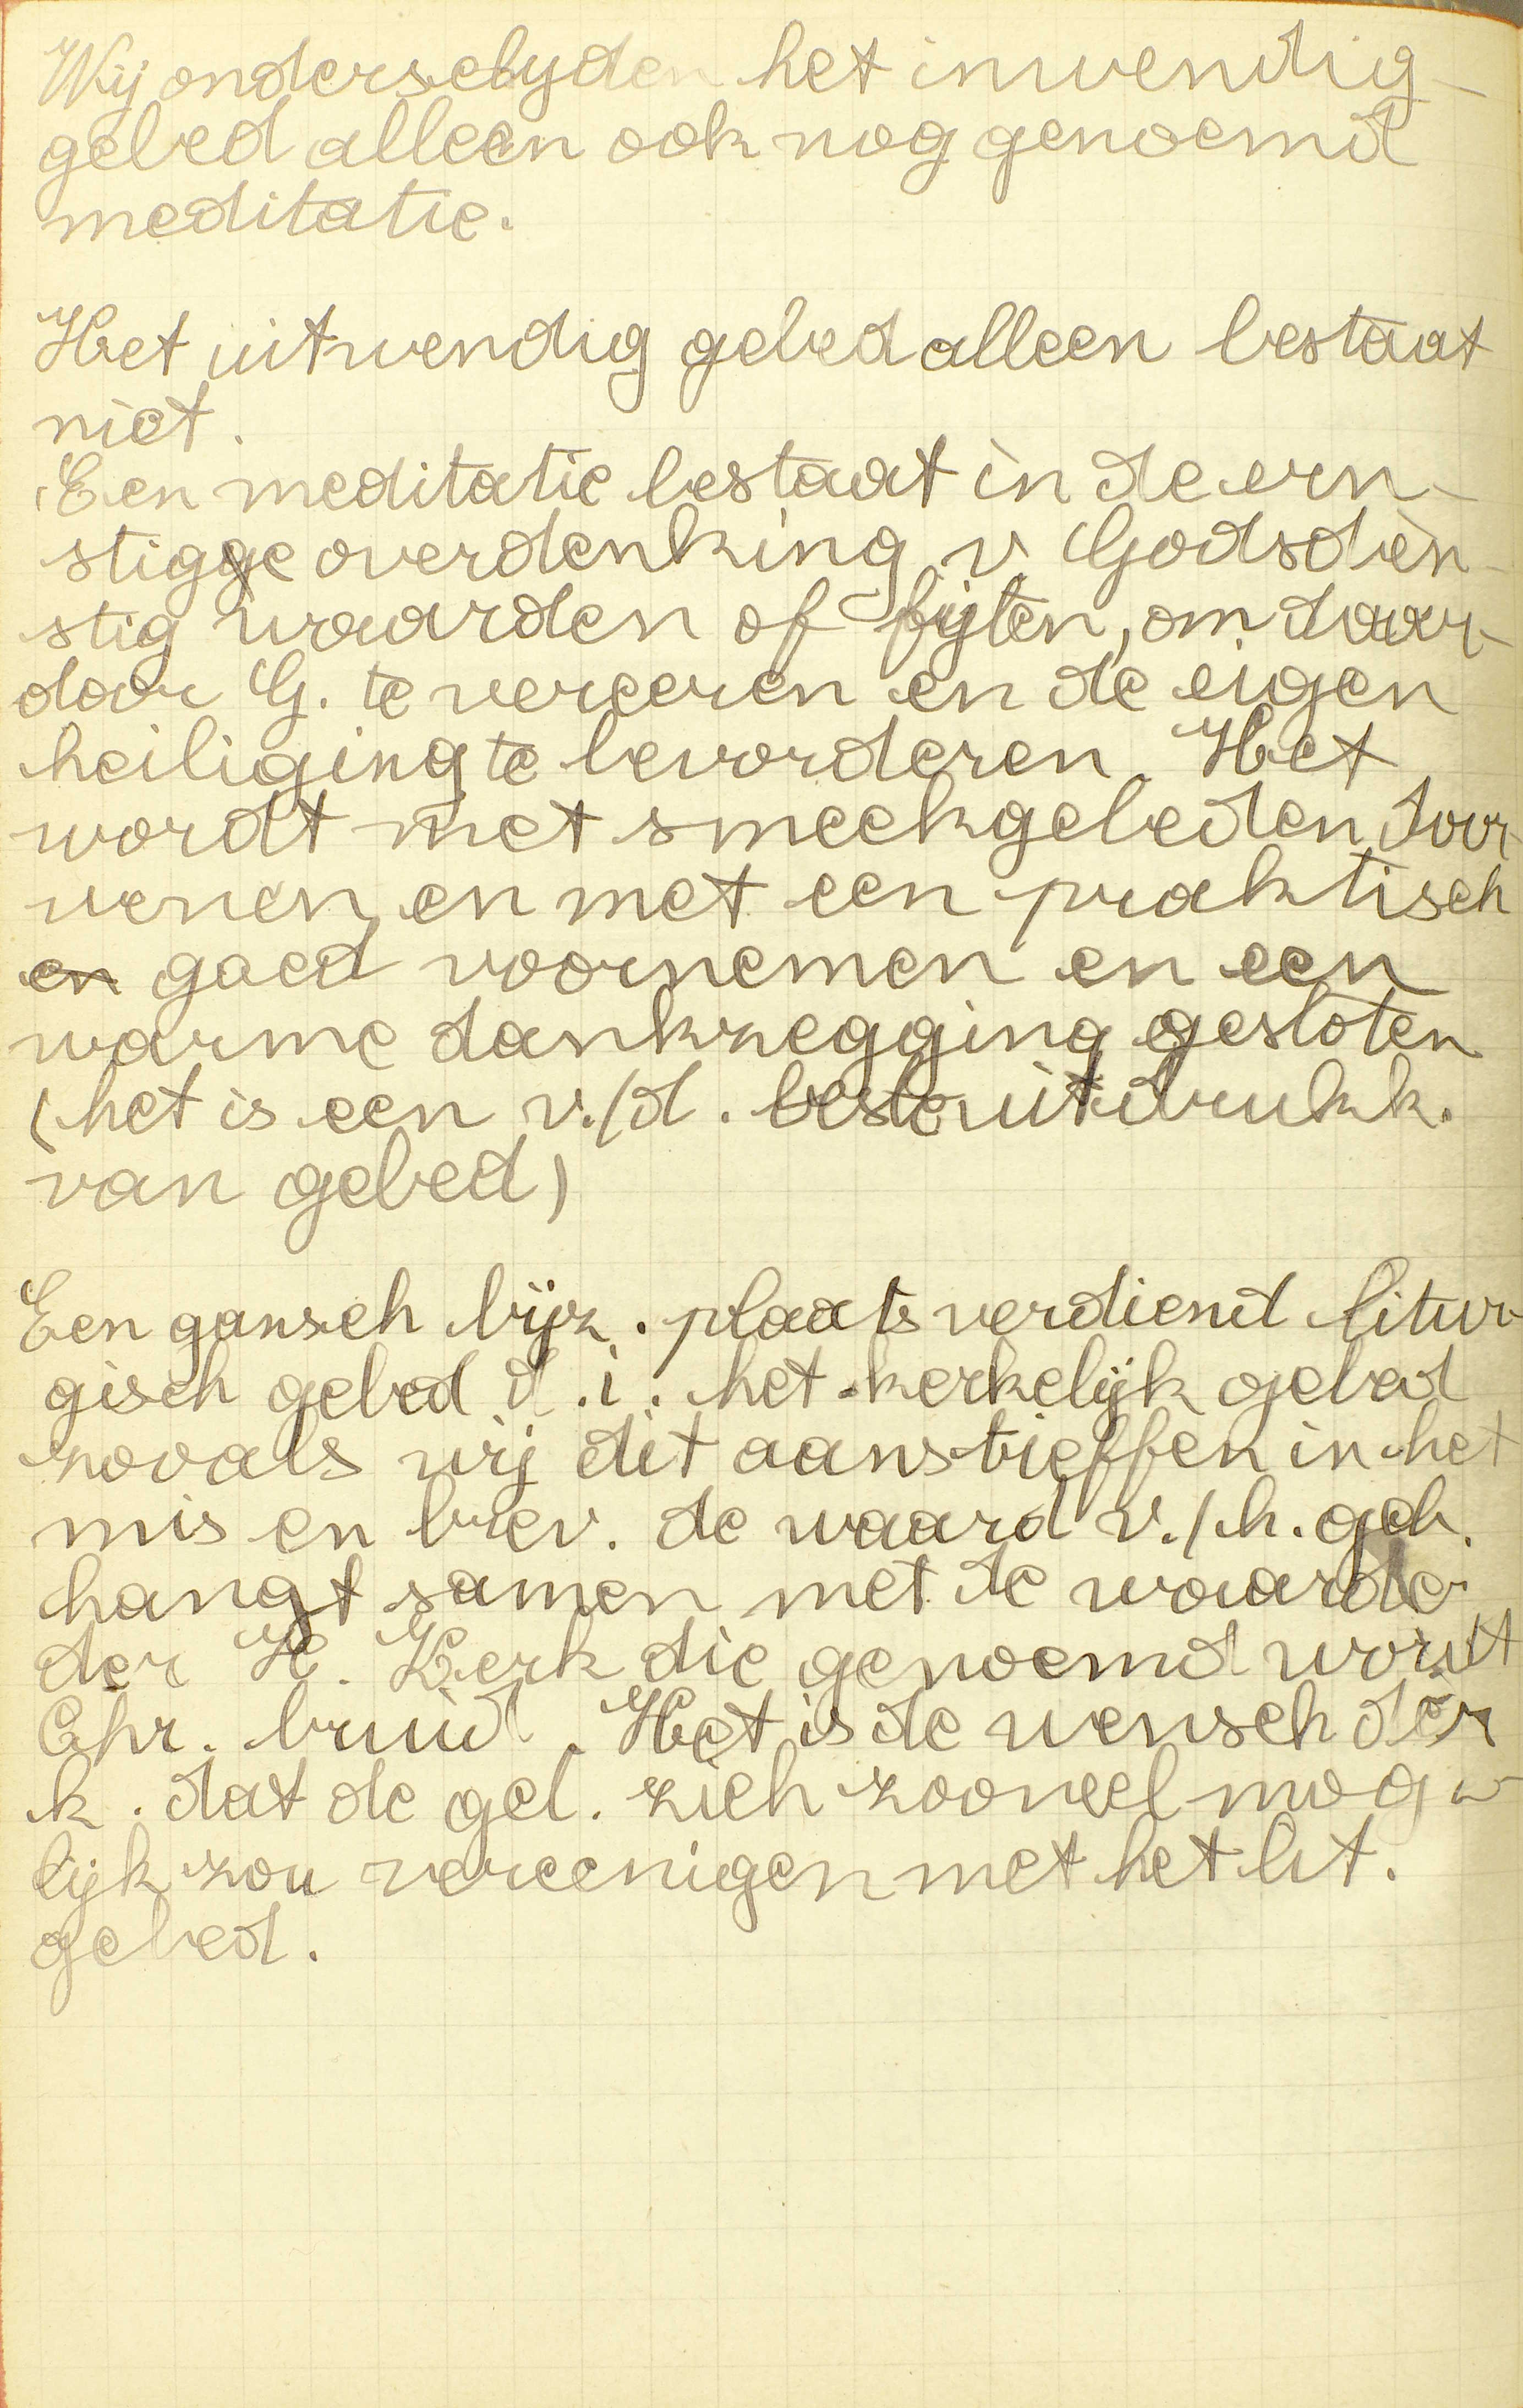 Wij onderscheyden het inwendig
gebed alleen ook nog genoemd
meditatie.
Het uitwendig gebed alleen bestaat
niet.
Een meditatie bestaat in de ern-
stige overdenking v Godsdien-
stig waarden of fijten, om daar-
door G. te vereeren en de eigen
heiliging te bevorderen. Het
wordt met smeekgebeden door
weven, en met een praktisch
en goed voornemen en een
warme dankzegging gesloten
(het is een v./d. beste uitdrukk.
van gebed)
Een gansch bijz. plaats verdiend litur-
gisch gebed d.i. het kerkelijk gebed
zooals wij dit aanstreffen in het
mis en brev. de waard v./h. geb.
hangt samen met de waarde
der H. Kerk die genoemd wordt
Chr. bruid. Het is de wensch der
k. dat de gel. zich zooveel moge-
lijk zou vereenigen met het lit.
gebed.